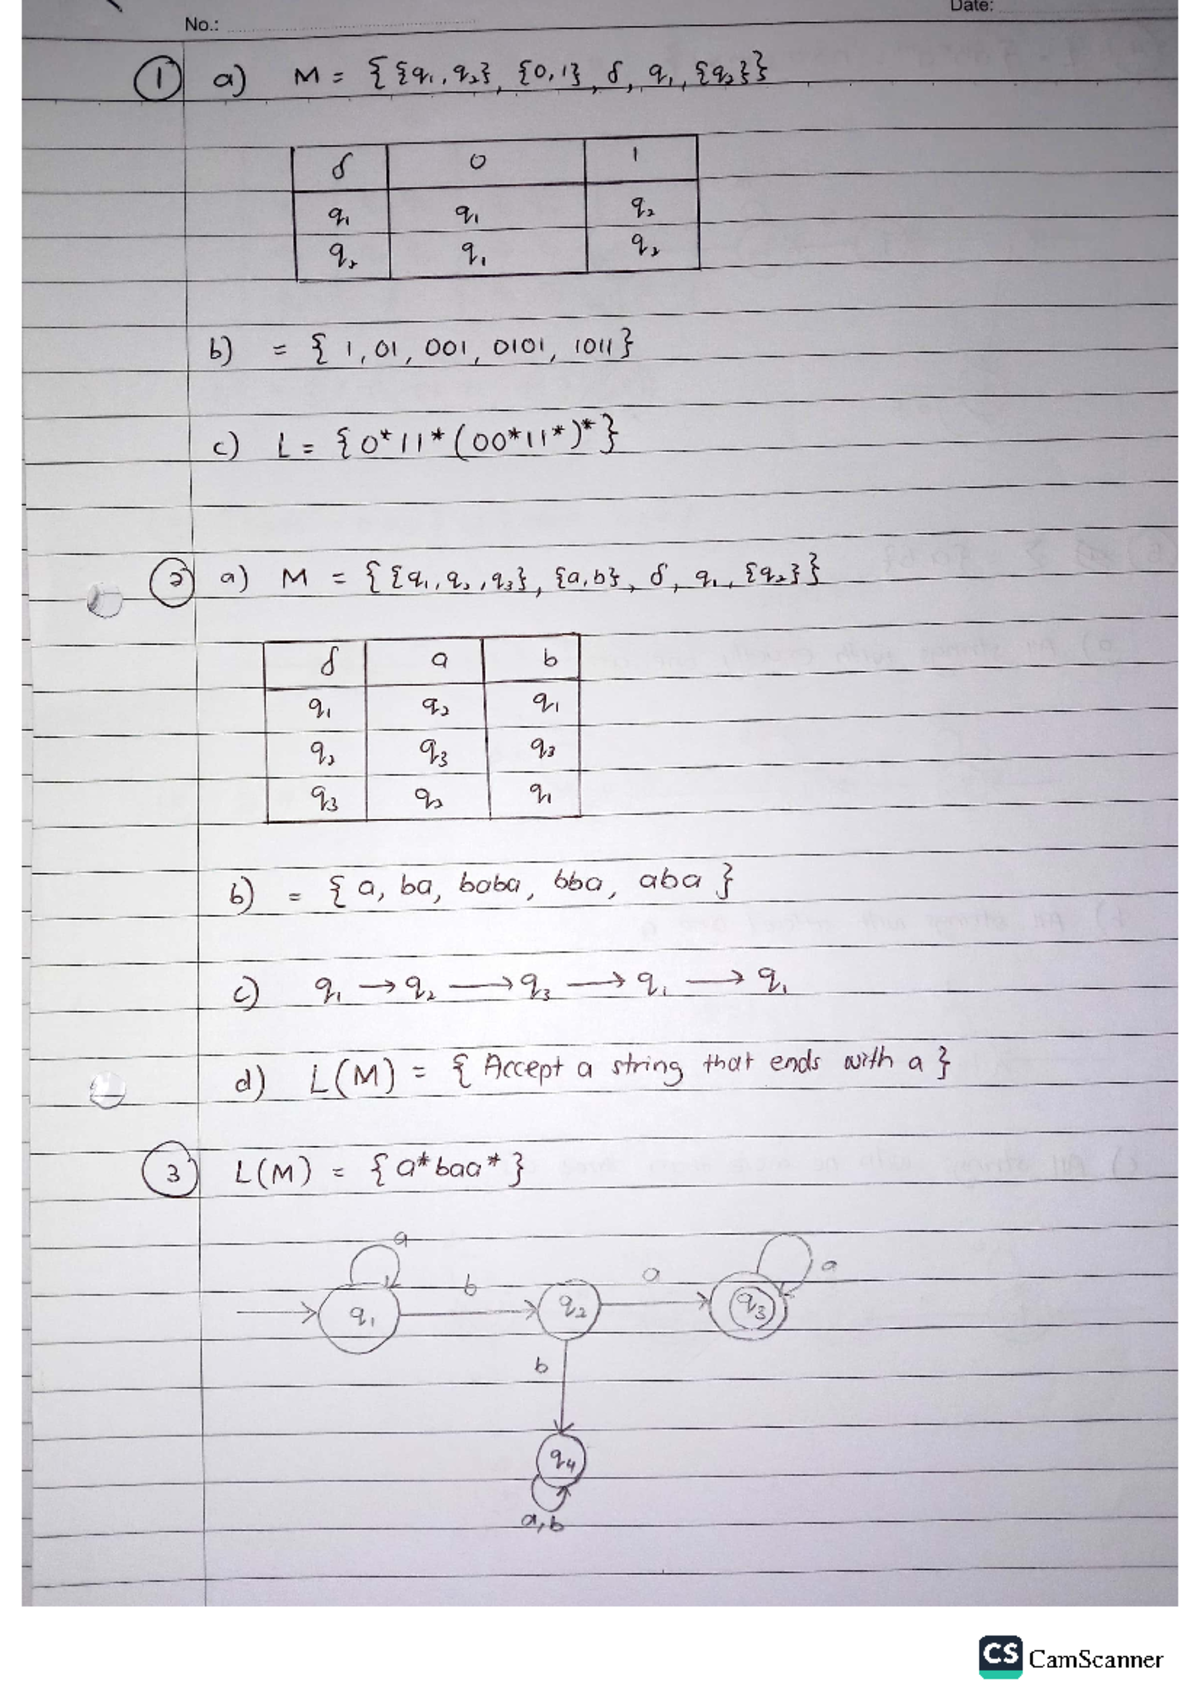 Date:
No.:
1 a) M = {{q₁, q₂}, {0,1}, δ, q₁, {q₂}}
δ 0 1
q₁ q₁ q₂
q₂ q₁ q₂
b) = { 1, 01, 001, 0101, 1011}
c) L = {0*11*(00*11*)*}
2 a) M = {{q₁, q₂, q₃}, {a,b}, δ, q₁, {q₂}}
δ a b
q₁ q₂ q₁
q₂ q₃ q₃
q₃ q₂ q₁
b) = { a, ba, baba, bba, aba }
c) q₁ → q₂ → q₃ → q₁ → q₁
d) L(M) = { Accept a string that ends with a }
3 L(M) = {a*baa*}
a
b
a
a
q₁
q₂
q₃
b
q₄
a,b
CS CamScanner